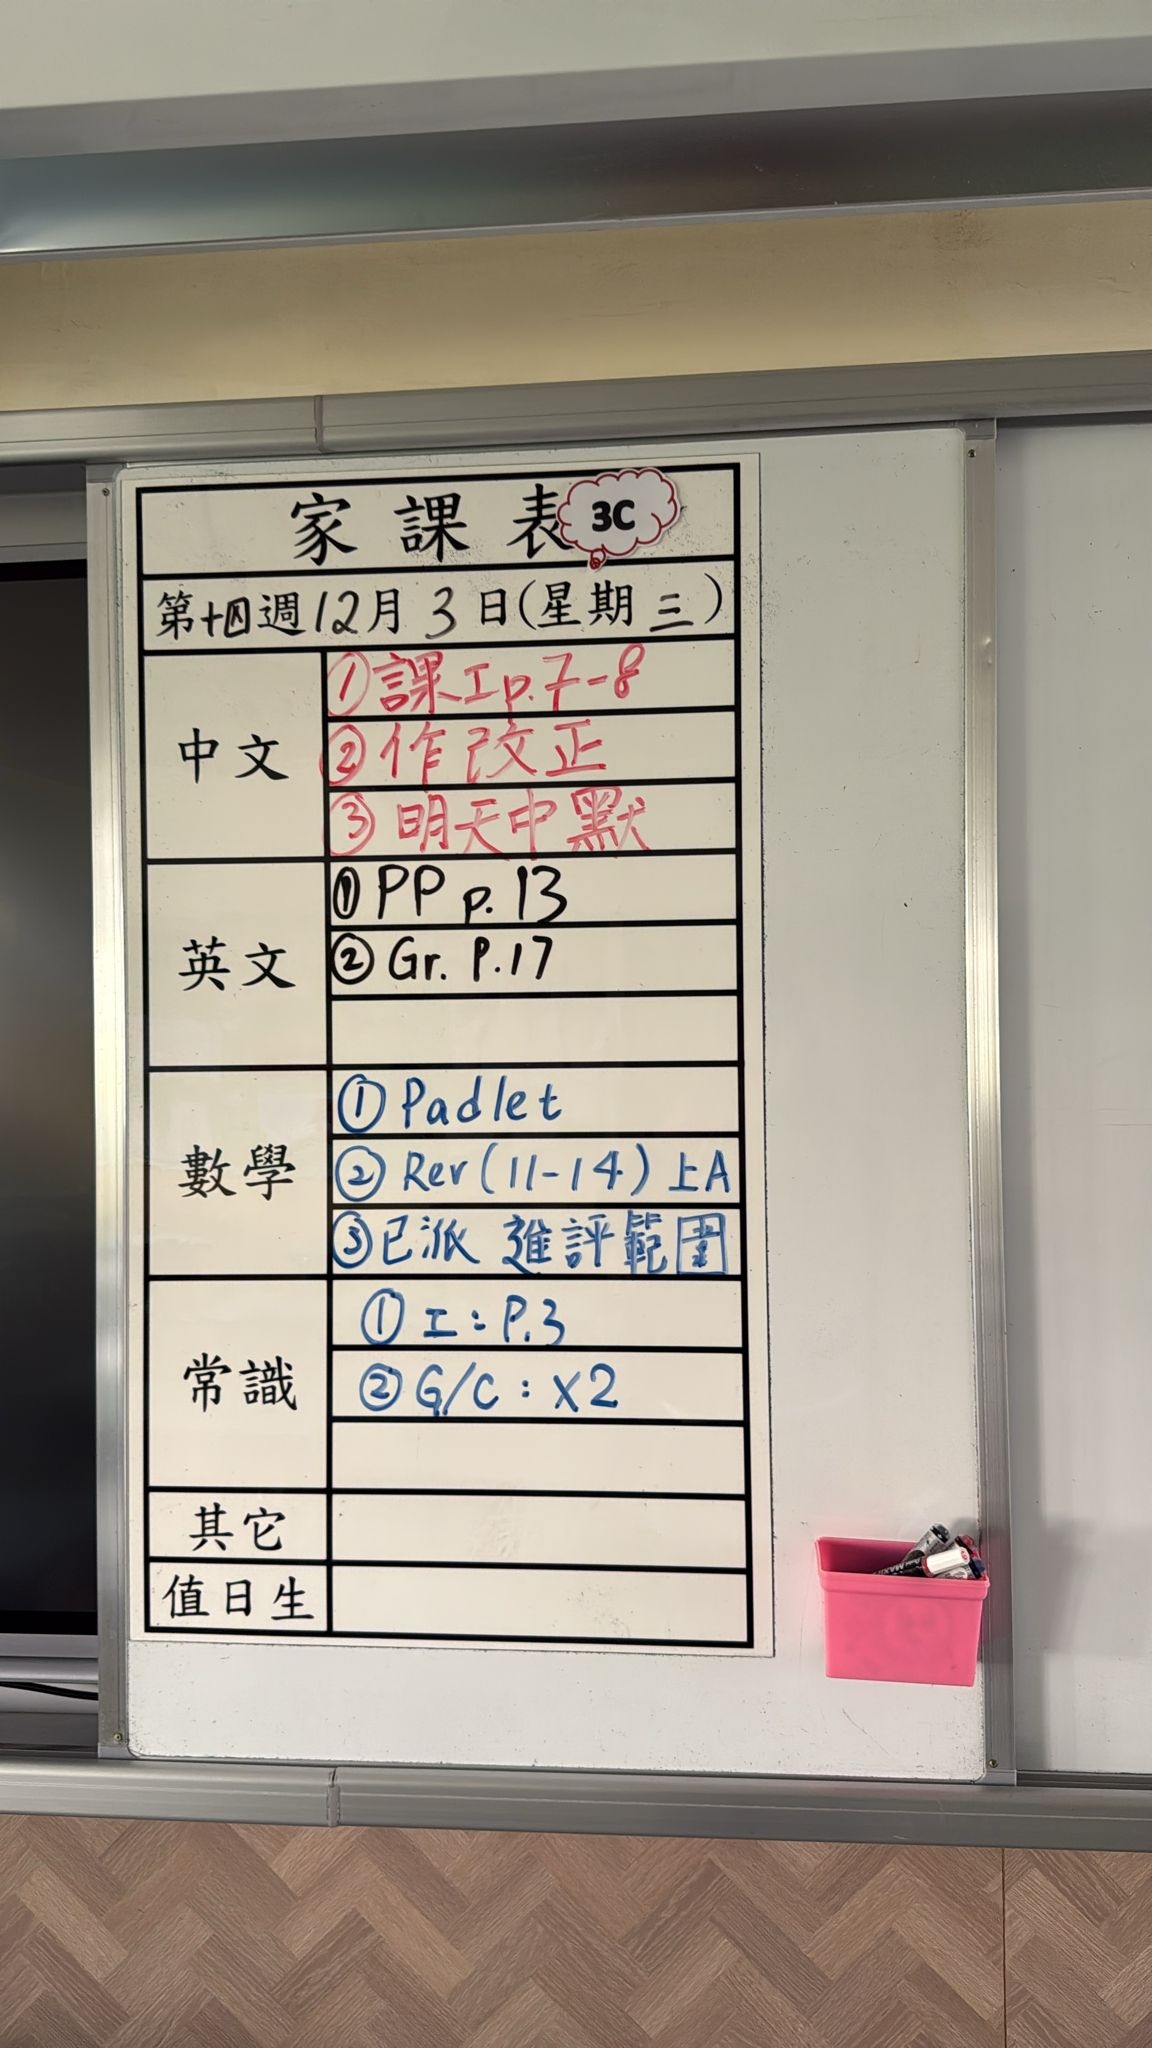 家課表 3C
第十四週12月3日(星期三)
中文
①課工p.7-8
②作改正
③明天中默
英文
①PP p.13
②Gr. P.17
數學
①Padlet
②Rev(11-14)上A
③已派 進評範圍
常識
①工:P.3
②G/C:x2
其它
值日生